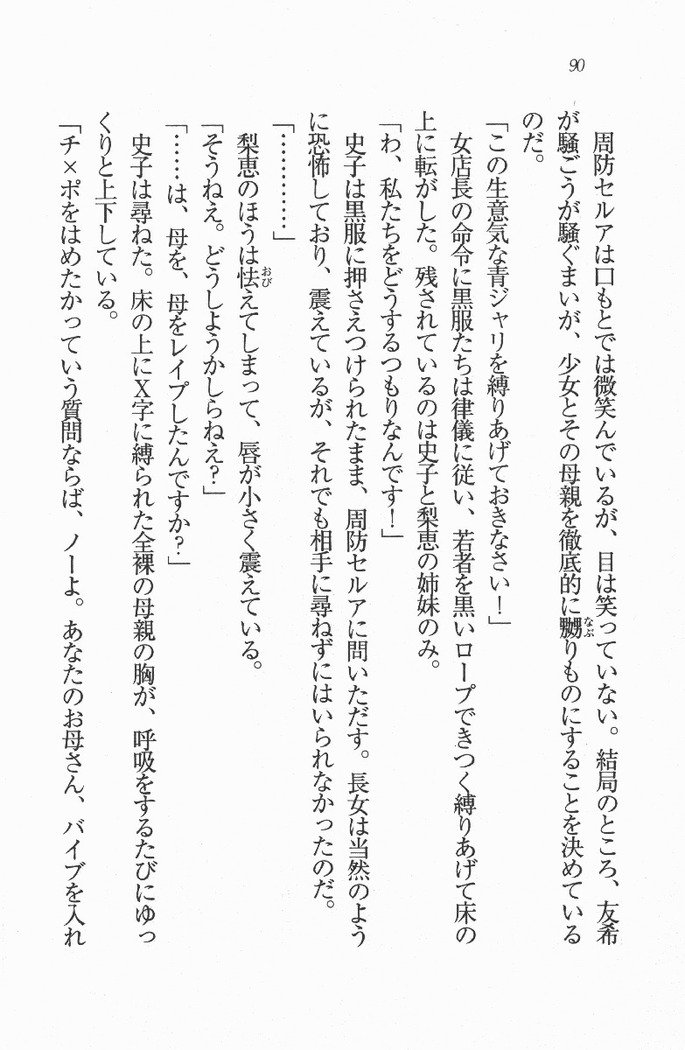 90
周防セルアは口もとでは微笑んでいるが、目は笑っていない。結局のところ、友希
が騒ごうが騒ぐまいが、少女とその母親を徹底的に嬲りものにすることを決めている
のだ。
「この生意気な青ジャリを縛りあげておきなさい！」
女店長の命令に黒服たちは律儀に従い、若者を黒いロープできつく縛りあげて床の
上に転がした。残されているのは史子と梨恵の姉妹のみ。
「わ、私たちをどうするつもりなんです！」
史子は黒服に押さえつけられたまま、周防セルアに問いただす。長女は当然のよう
に恐怖しており、震えているが、それでも相手に尋ねずにはいられなかったのだ。
「…………」
梨恵のほうは怯えてしまって、唇が小さく震えている。
「そうねえ。どうしようかしらねえ？」
「……は、母を、母をレイプしたんですか？」
史子は尋ねた。床の上にX字に縛られた全裸の母親の胸が、呼吸をするたびにゆっ
くりと上下している。
「チ×ポをはめたかっていう質問ならば、ノーよ。あなたのお母さん、バイブを入れ